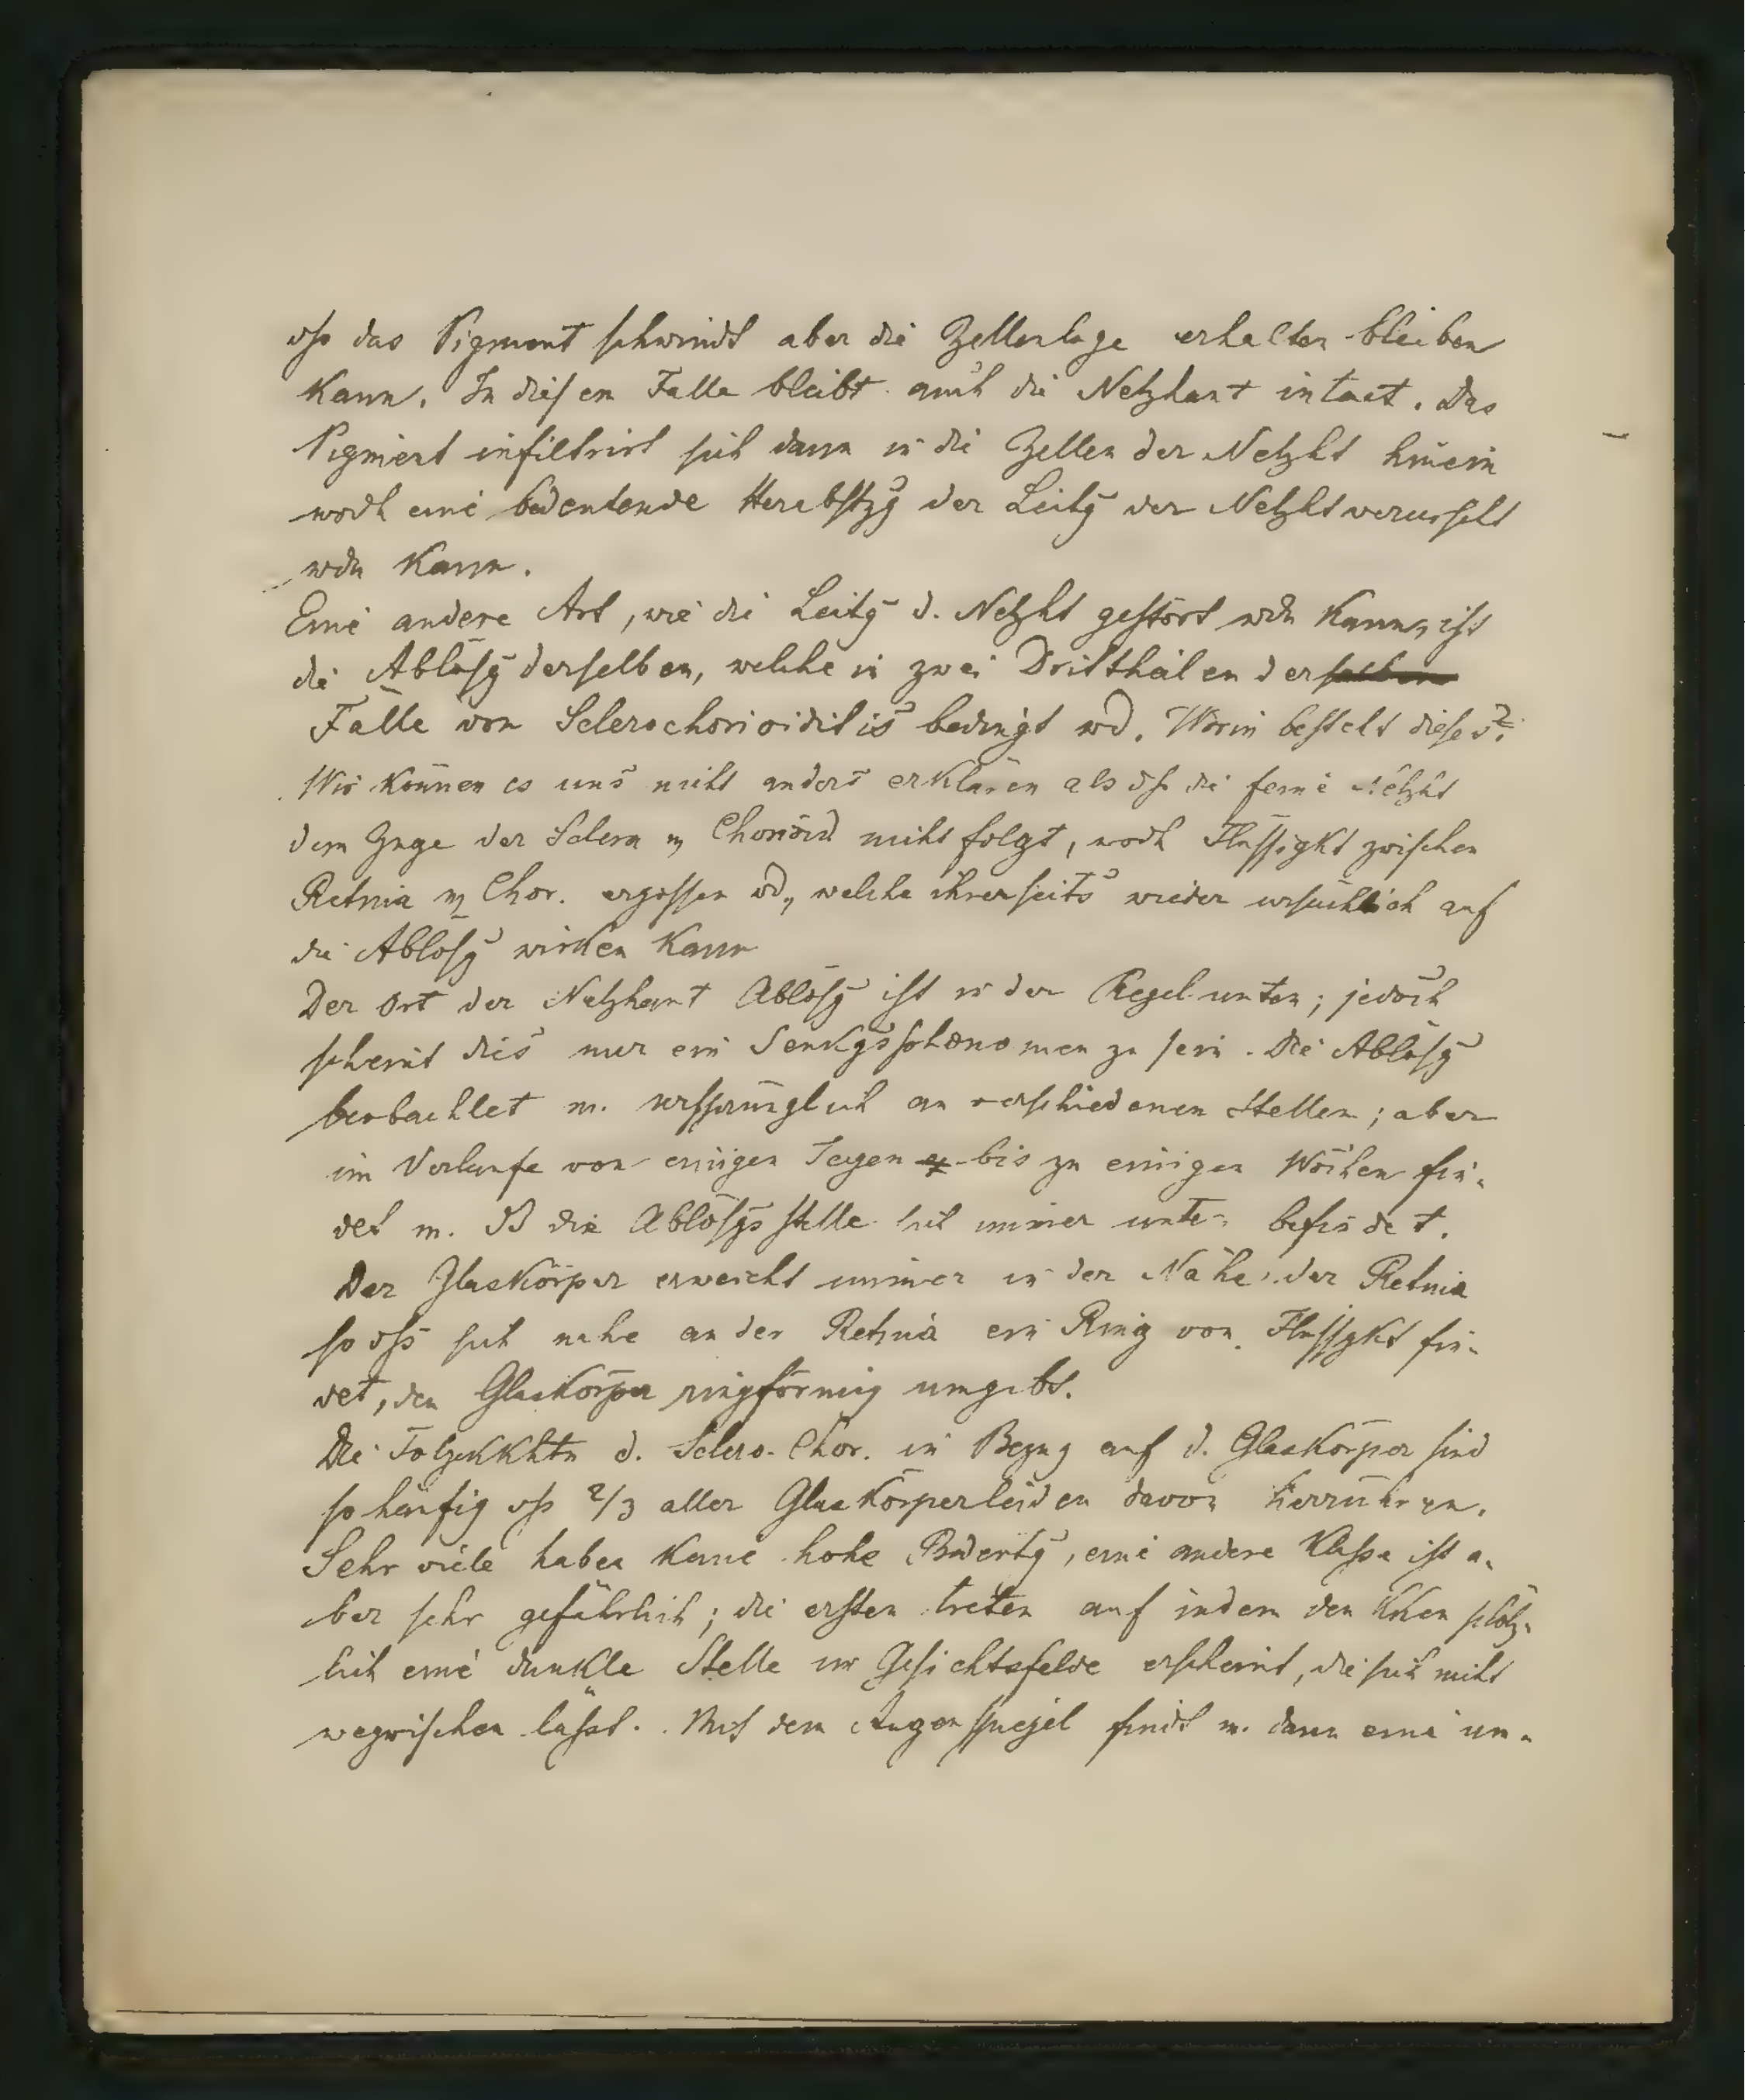 dß das Pigment schwindt aber die Zellenlage erhalten bleiben
kann. In diesem Falle bleibt auch die Netzhaut intact. Das
Pigment infiltrirt sich dann in die Zellen der Netzht hinein
wodh eine bedeutende Herabstzg der Leitg der Netzht verurscht
wdn kann.
Eine andere Art, wie die Leitg d. Netzht gestört wdn kann, ist
die Ablösg derselben, welche in zwei Dritthailen derselben
Fälle von Sclerochorioiditis bedingt wd. Worin besteht dieses?
Wir können es uns nicht anders erklären als dß die feine Netzht
dem Zuge der Sclera u Chorioid nicht folgt, wodh Flüssigkt zwischen
Retina u Chor. ergossen wd, welche ihrerseits wieder ursächlich auf
die Ablösg wirken kann
Der Ort der Netzhaut Ablösg ist in der Regel unten; jedoch
scheint dies nur ein Senkgsphænomen zu sein. Die Ablösg
beobachtet m. ursprünglich an verschiedenen Stellen; aber
im Verlaufe von einigen Tagen bis zu einigen Wochen fin-
det m. dß die Ablösgsstelle sich immer unten befindet.
Der Glaskörper erweicht immer in der Nähe der Retina
so dß sich nahe an der Retina ein Ring von Flüssgkt fin-
det, den Glaskörper ringförmig umgebt.
Die Folgekkhtn d. Sclero-Chor. in Bezug auf d. Glaskörper sind
so häufig dß 2/3 aller Glaskörperleiden davon herrühren.
Sehr viele haben keine hohe Bedeutg, eine andere Klasse ist a-
ber sehr gefährlich; die ersten treten auf indem den Kken plötz-
lich eine dunkle Stelle im Gesichtsfelde erscheint, die sich nicht
wegwischen lässt. Mit dem Augenspiegel findt m. dann eine un-